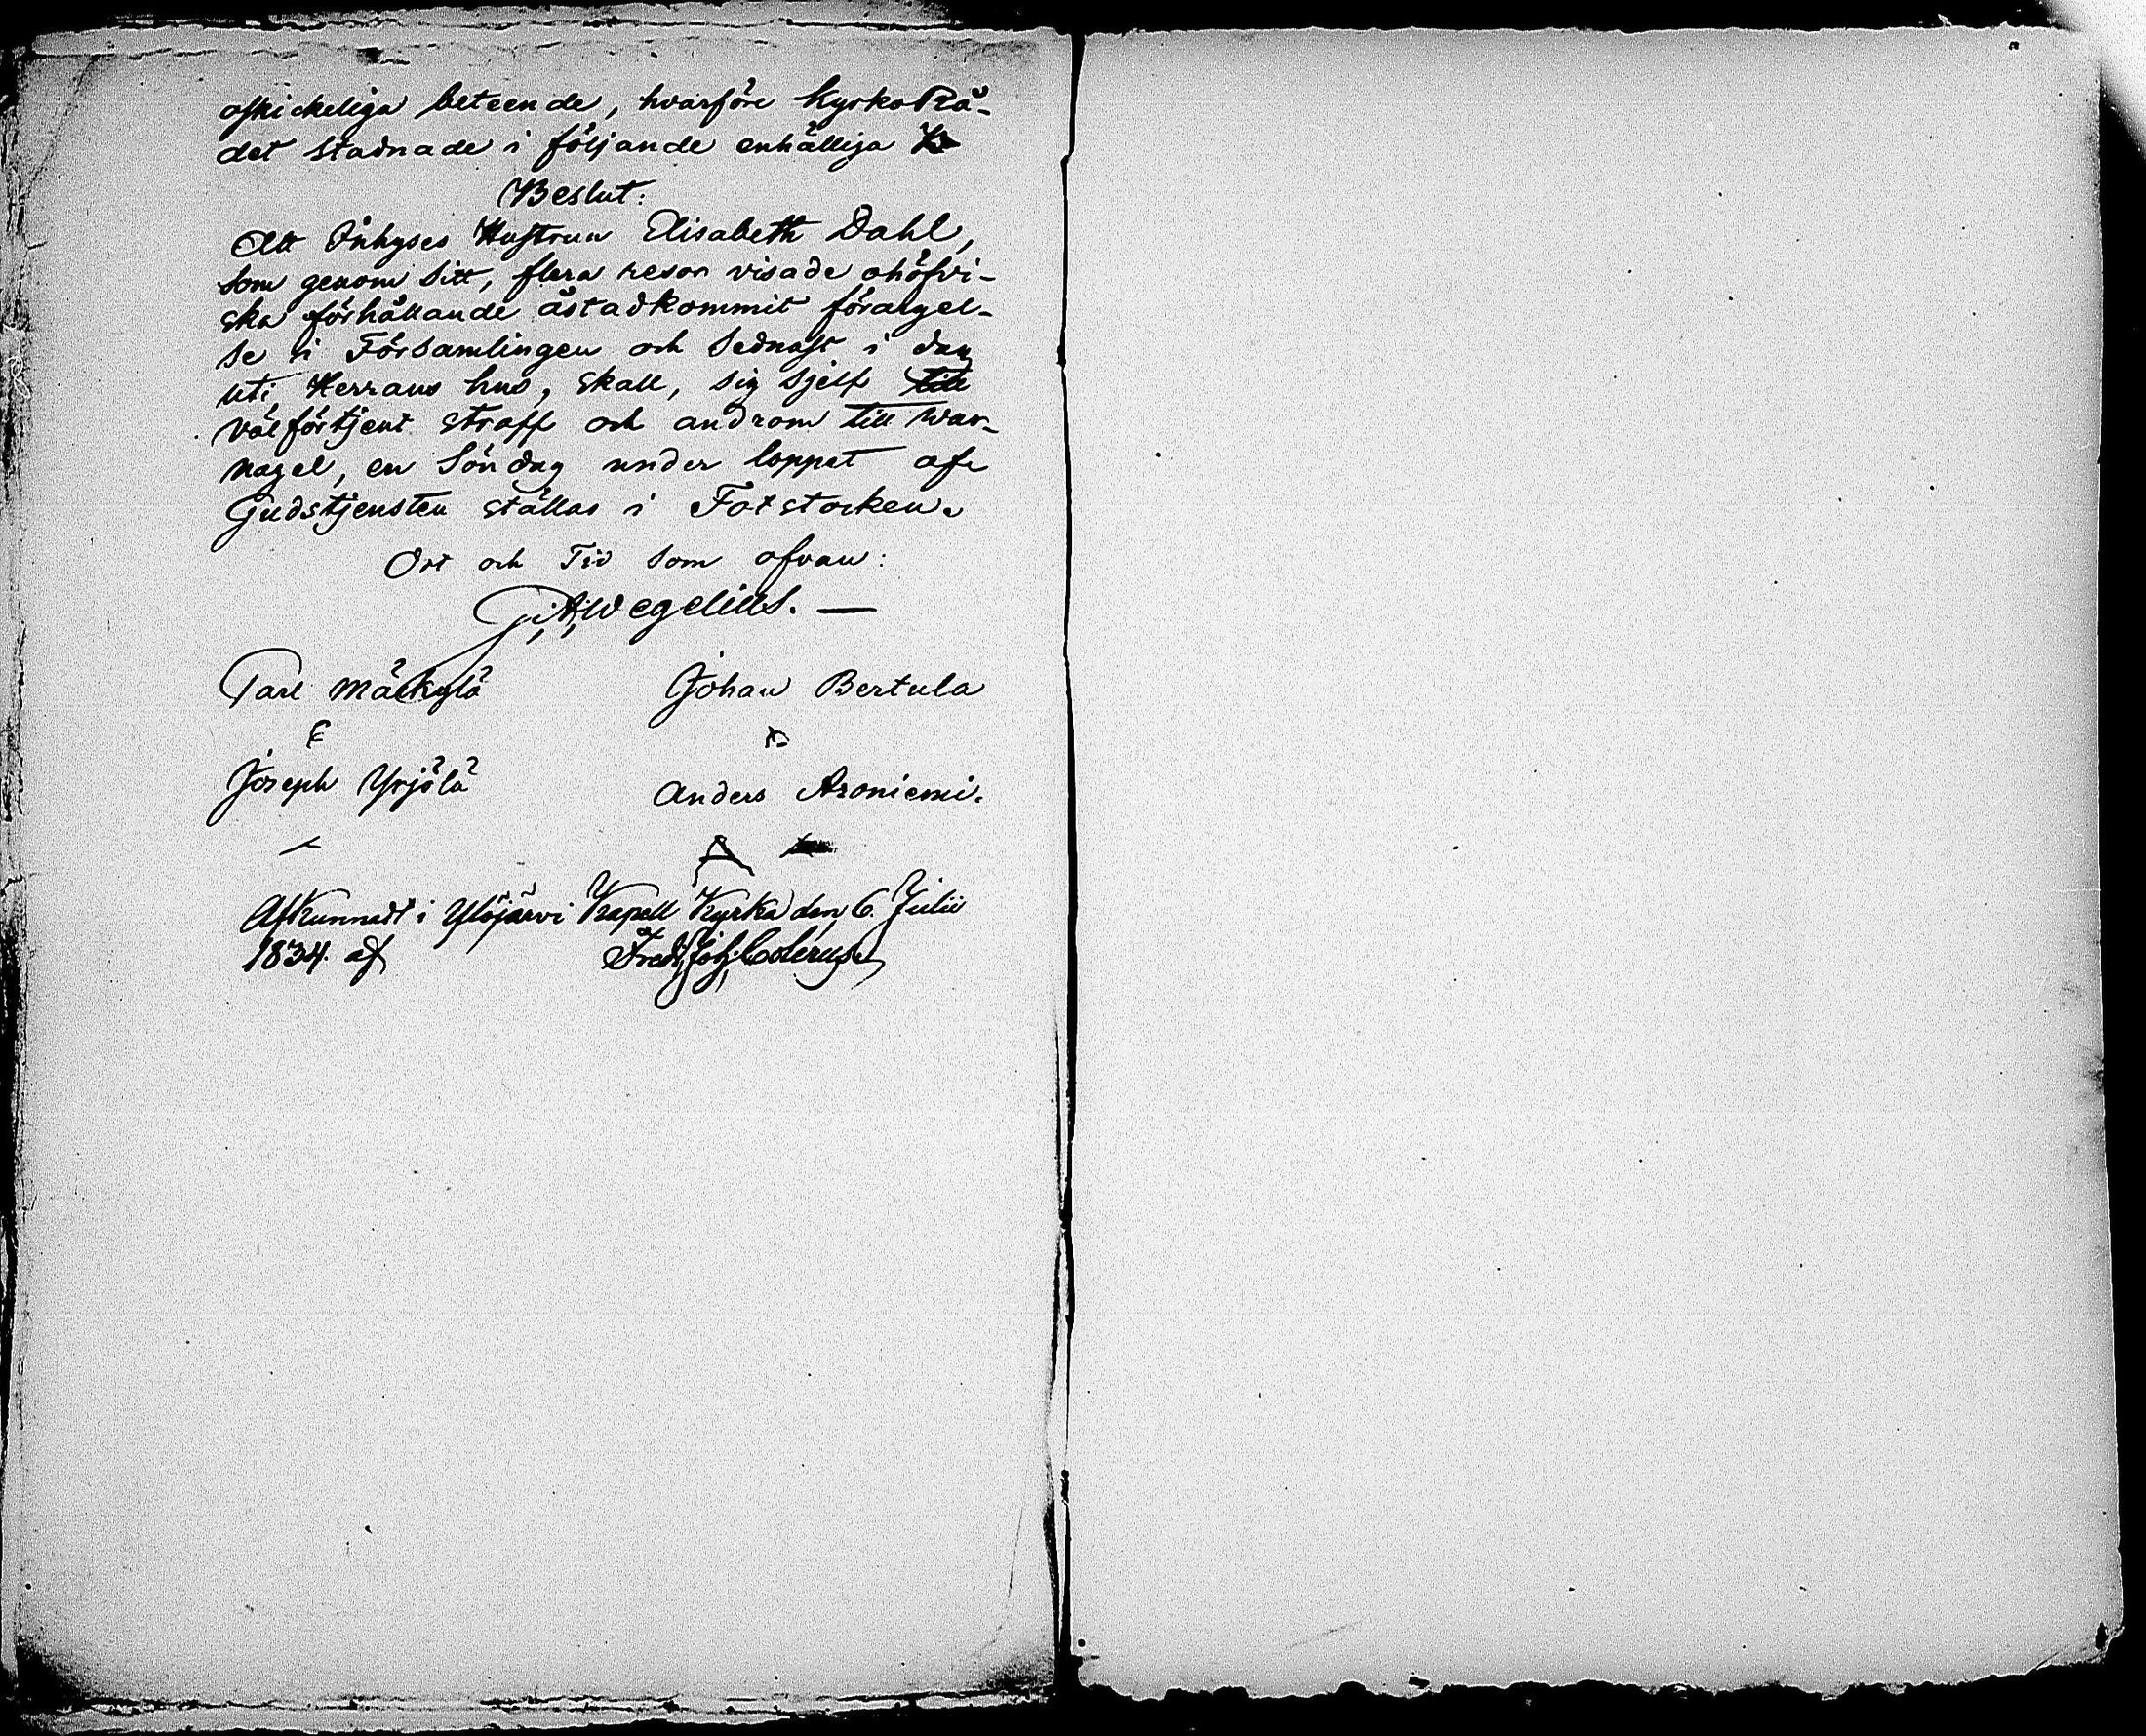 oskickeliga beteende, hvarföre KyrkoRå-
det stadnade i följande enhälliga
Beslut:
Att Inhyses Hustrun Elisabeth Dahl,
som genom sitt, flera resor visade ohöfvi-
ska förhållande åstadkommit förargel-
se i Församlingen och sednast i dag
uti Herrans hus, skall, sig sjelf till
välförtjent straff och androm till War-
nagel, en Söndag under loppet af
Gudstjensten ställas i Fotstocken.
Ort och Tid som ofvan:
G. A. Wegelius. —
Carl Mäckylä Johan Bertula
Joseph Yrjölä Anders Aroniemi.
Afkunnadt i Ylöjärvi Kapell Kyrka den 6. Julii
1834. af Fredr. Joh. Colerus